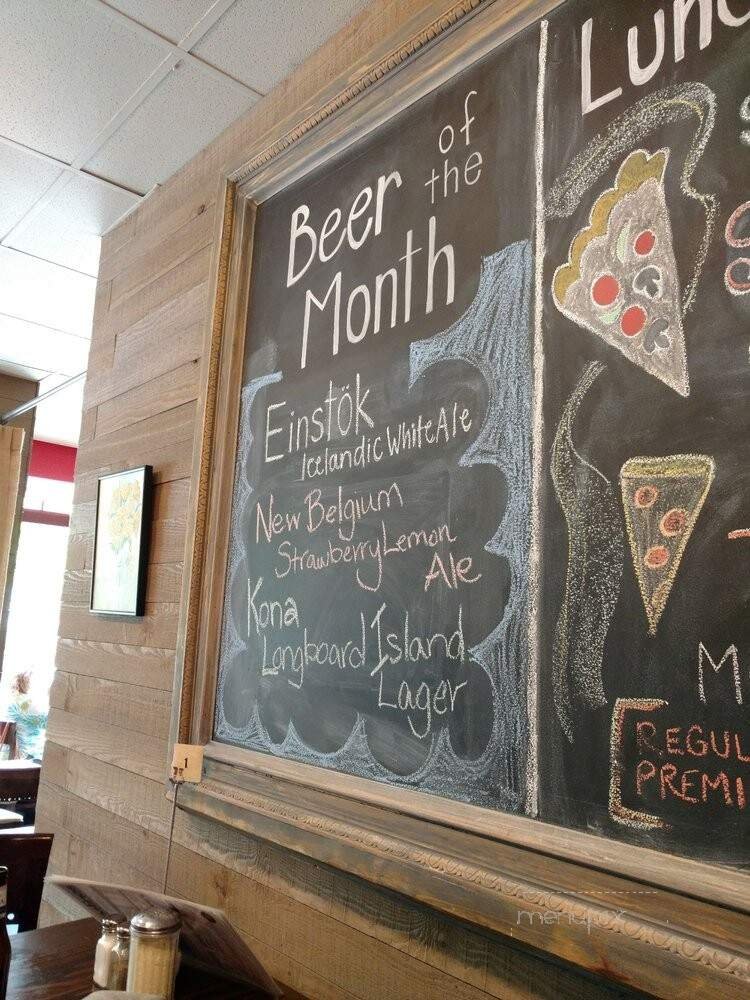 Beer of
the
Month
Einstök
Icelandic White Ale
New Belgium
Strawberry Lemon
Ale
Kona
Longboard Island
Lager
1
Lunc
M
REGUL
PREMI
menupix